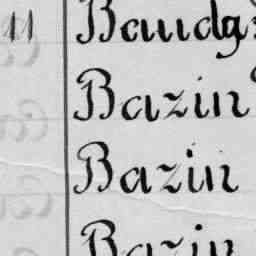 11 Baudg
Bazin
Bazin
Bazin